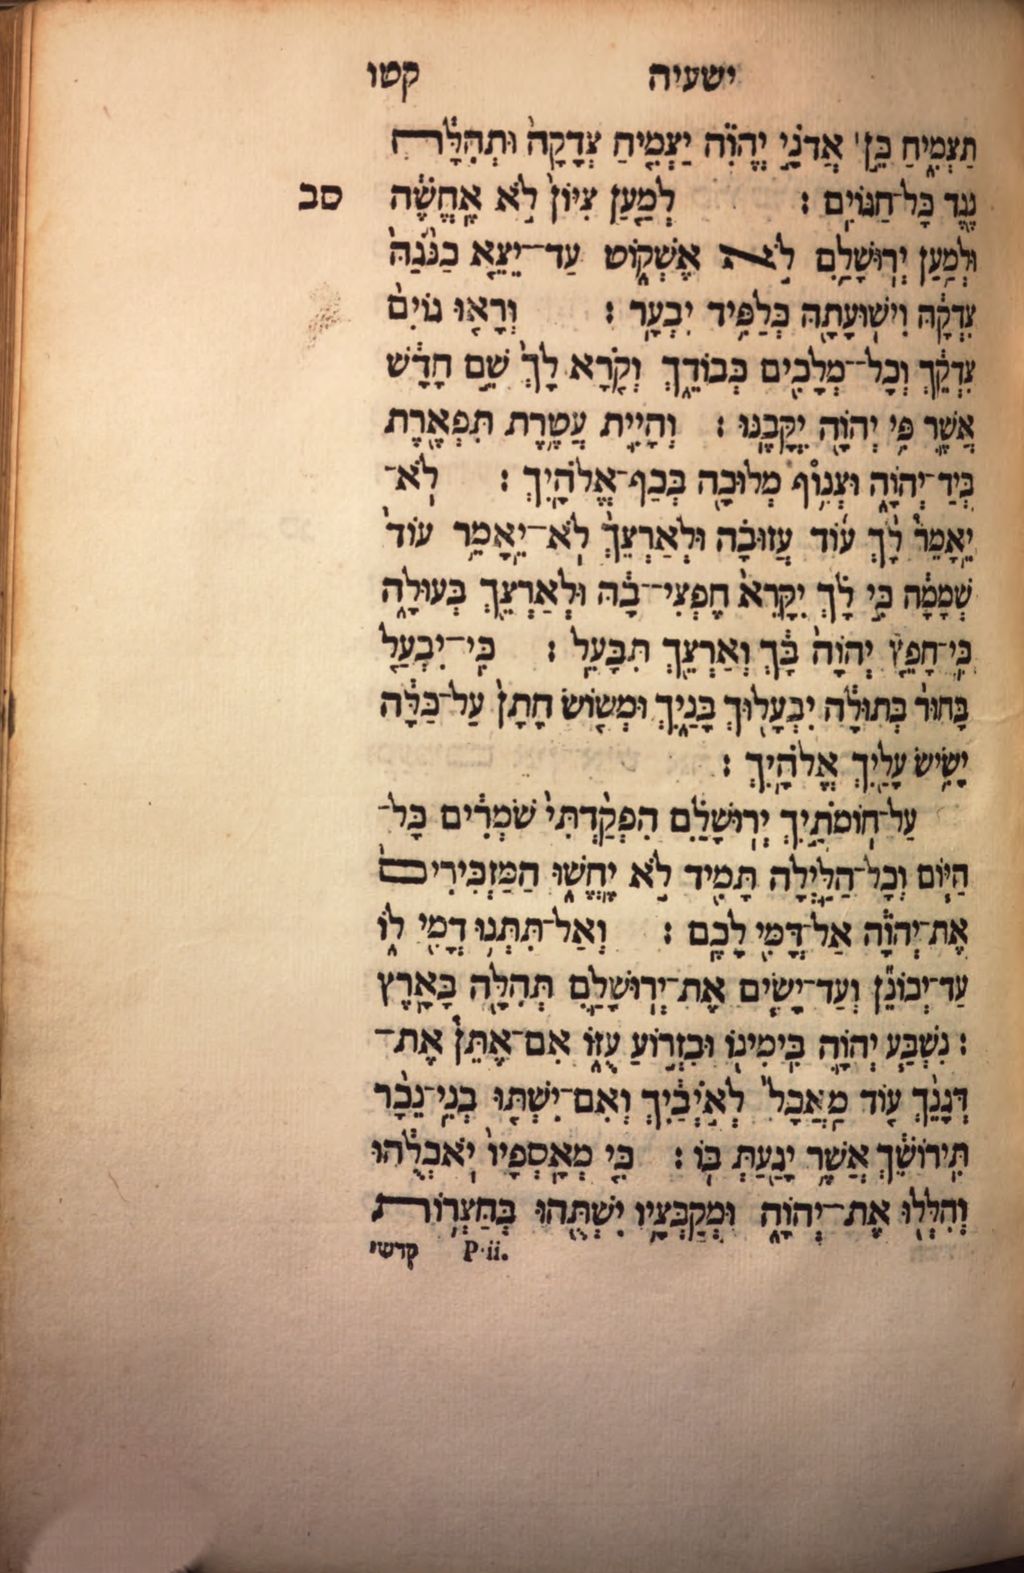 ישעיה קטו
תַצְמִיחַ כֵּן אֲדֹנָי יְהֹוִה יַצְמִיחַ צְדָקָה וּתְהִלָּה
נֶגֶד כָּל־הַגּוֹיִם : לְמַעַן צִיּוֹן לֹא אֶחֱשֶׁה סב
וּלְמַעַן יְרוּשָׁלִַם לֹא אֶשְׁקוֹט עַד־יֵצֵא כַנֹּגַהּ
צִדְקָהּ וִישׁוּעָתָהּ כְּלַפִּיד יִבְעָר : וְרָאוּ גוֹיִם
צִדְקֵךְ וְכָל־מְלָכִים כְּבוֹדֵךְ וְקֹרָא לָךְ שֵׁם חָדָשׁ
אֲשֶׁר פִּי יְהֹוָה יִקֳּבֶנּוּ : וְהָיִית עֲטֶרֶת תִּפְאֶרֶת
בְּיַד־יְהֹוָה וּצְנוֹף מְלוּכָה בְּכַף־אֱלֹהָיִךְ : לֹא־
יֵאָמֵר לָךְ עוֹד עֲזוּבָה וּלְאַרְצֵךְ לֹא־יֵאָמֵר עוֹד
שְׁמָמָה כִּי לָךְ יִקָּרֵא חֶפְצִי־בָהּ וּלְאַרְצֵךְ בְּעוּלָה
כִּי־חָפֵץ יְהֹוָה בָּךְ וְאַרְצֵךְ תִּבָּעֵל : כִּי־יִבְעַל
בָּחוּר בְּתוּלָה יִבְעָלוּךְ בָּנָיִךְ וּמְשׂוֹשׂ חָתָן עַל־כַּלָּה
יָשִׂישׂ עָלַיִךְ אֱלֹהָיִךְ :
עַל־חוֹמֹתַיִךְ יְרוּשָׁלִַם הִפְקַדְתִּי שֹׁמְרִים כָּל־
הַיּוֹם וְכָל־הַלַּיְלָה תָּמִיד לֹא יֶחֱשׁוּ הַמַּזְכִּירִים
אֶת־יְהֹוָה אַל־דֳּמִי לָכֶם : וְאַל־תִּתְּנוּ דֳמִי לוֹ
עַד־יְכוֹנֵן וְעַד־יָשִׂים אֶת־יְרוּשָׁלִַם תְּהִלָּה בָּאָרֶץ
: נִשְׁבַּע יְהֹוָה בִּימִינוֹ וּבִזְרוֹעַ עֻזּוֹ אִם־אֶתֵּן אֶת־
דְּגָנֵךְ עוֹד מַאֲכָל לְאֹיְבַיִךְ וְאִם־יִשְׁתּוּ בְנֵי־נֵכָר
תִּירוֹשֵׁךְ אֲשֶׁר יָגַעַתְּ בּוֹ : כִּי מְאַסְפָיו יֹאכְלֻהוּ
וְהִלְלוּ אֶת־יְהֹוָה וּמְקַבְּצָיו יִשְׁתֻּהוּ בְּחַצְרוֹת
P ii. קדשי